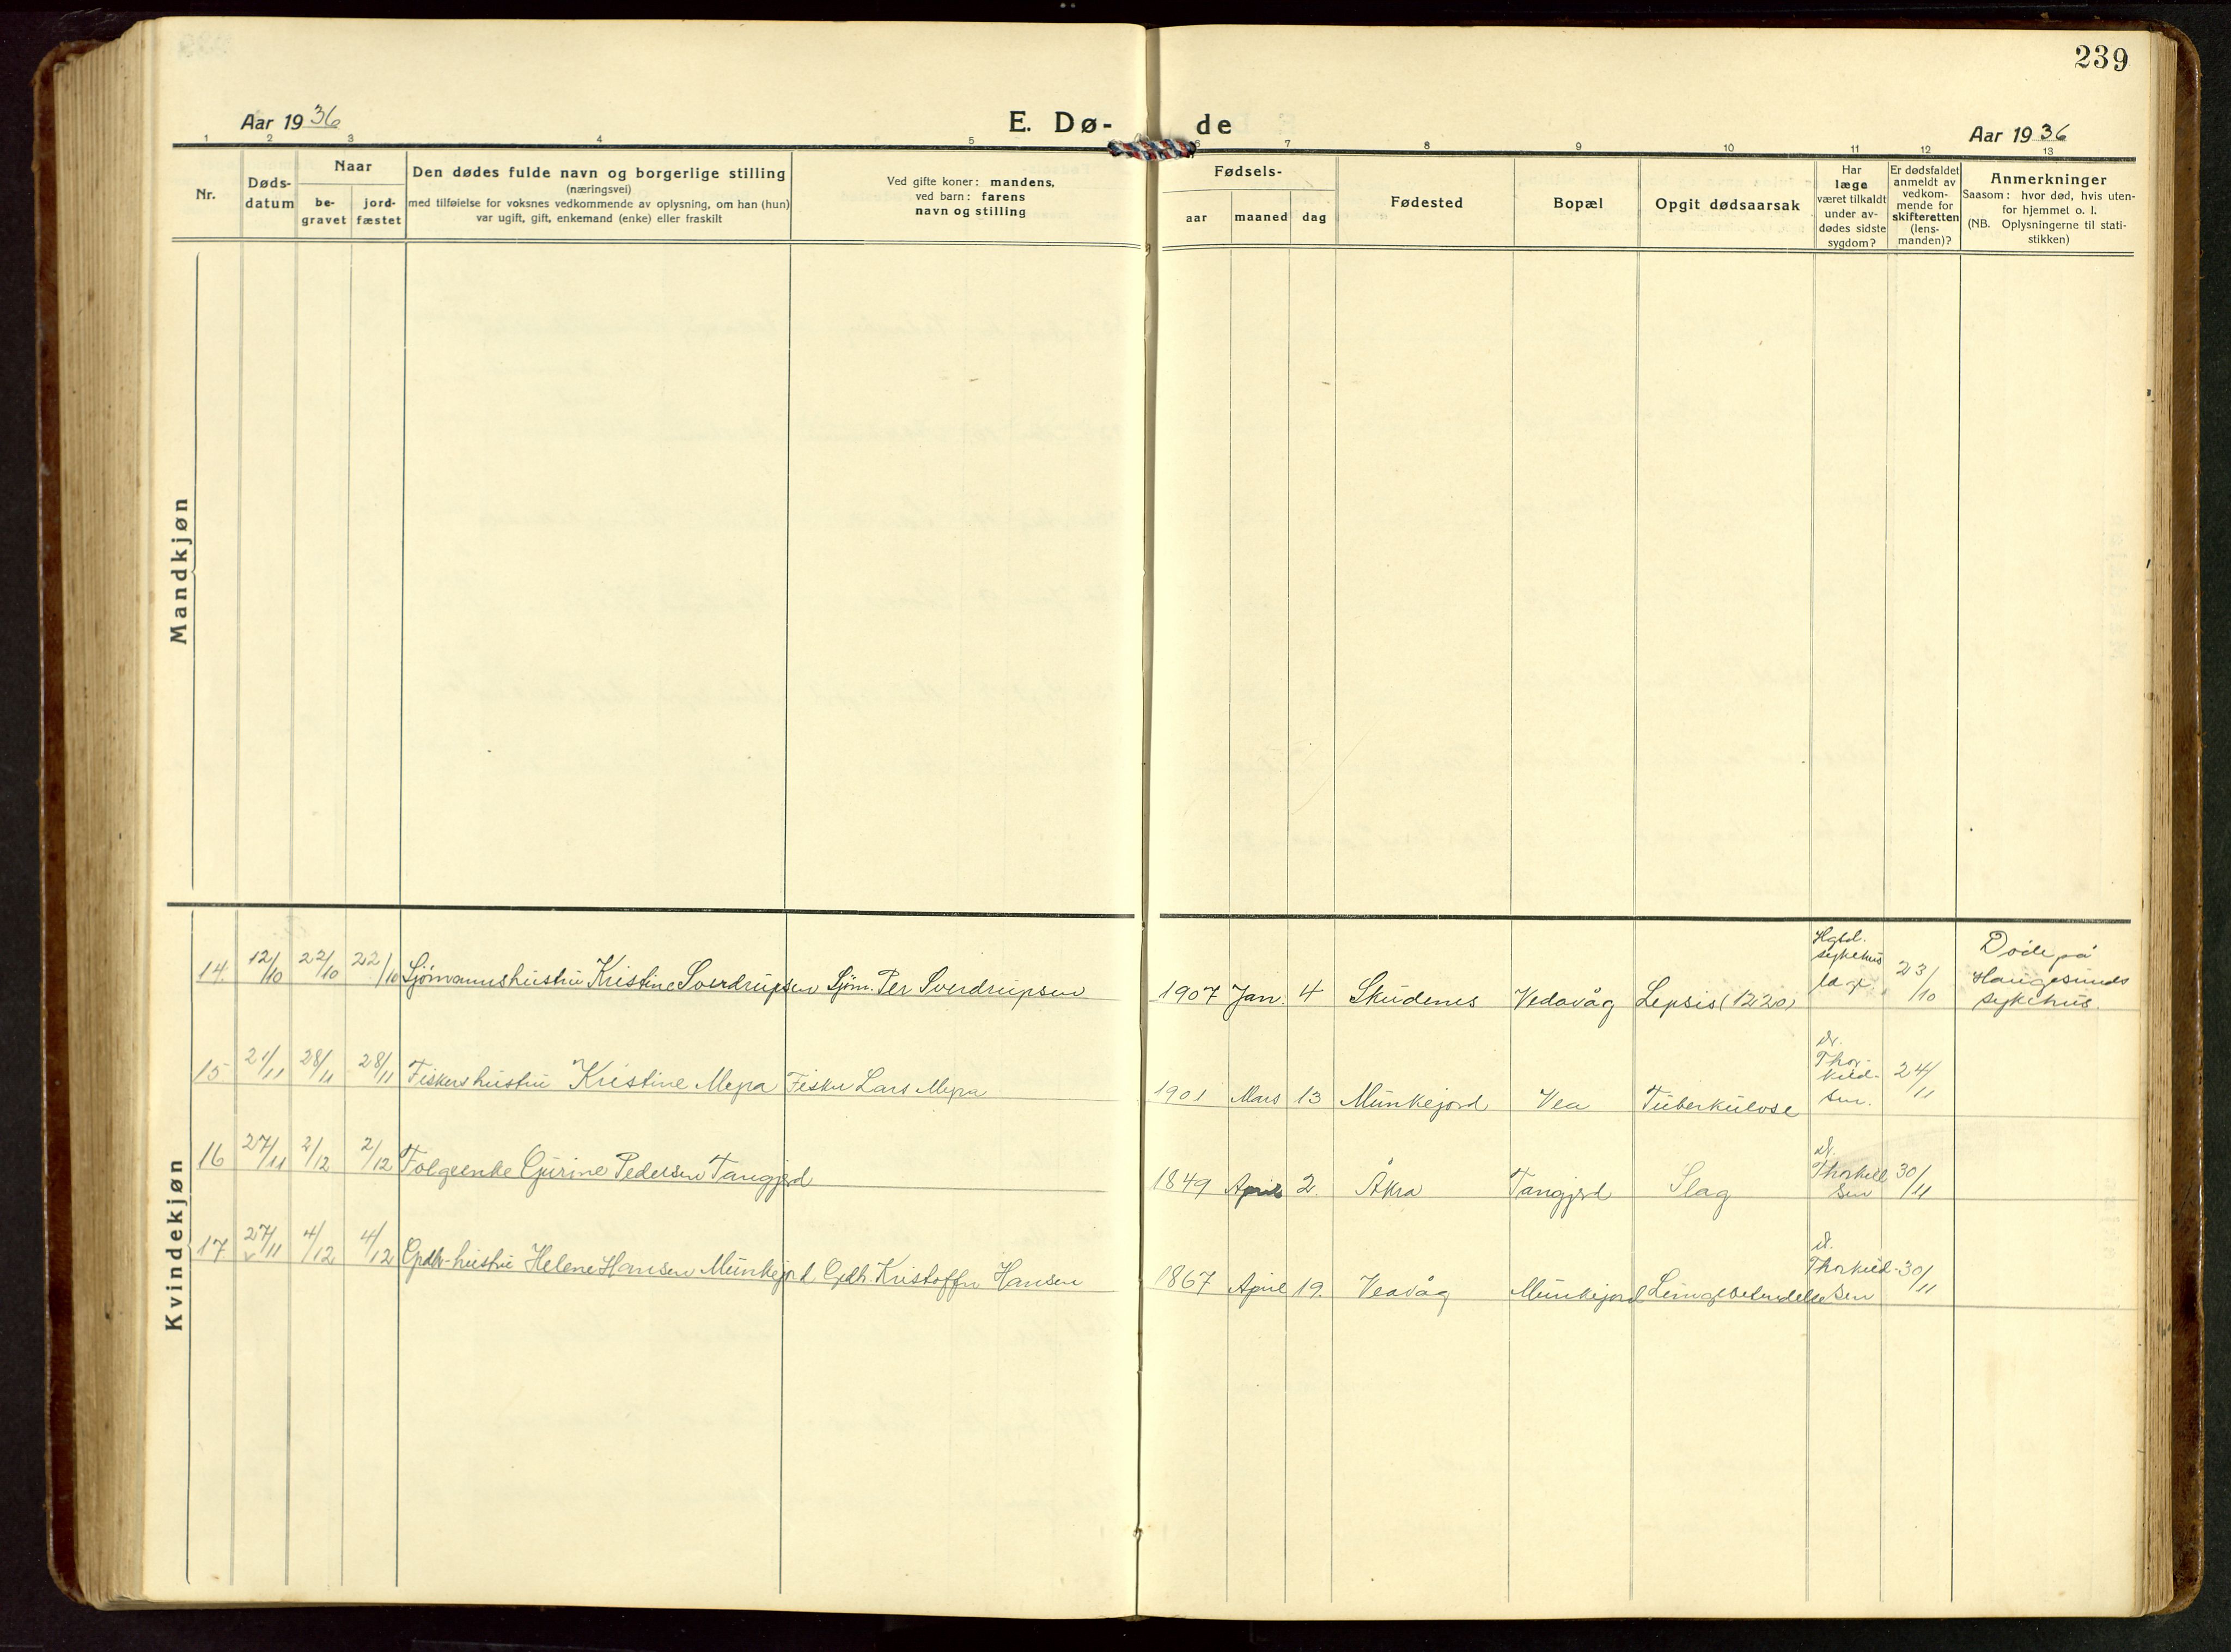 239
Aar 1936
E. Dø-
de
Aar 1936
1 2 3 4 5 6 7 8 9 10 11 12 13
Nr.
Døds-
datum
Naar
be-
gravet
jord-
fæstet
Den dødes fulde navn og borgerlige stilling
(næringsvei)
med tilføielse for voksnes vedkommende av oplysning, om han (hun)
var ugift, gift, enkemand (enke) eller fraskilt
Ved gifte koner: mandens,
ved barn: farens
navn og stilling
Fødsels-
aar
maaned
dag
Fødested
Bopæl
Opgit dødsaarsak
Har
læge
været tilkaldt
under av-
dødes sidste
sygdom?
Er dødsfaldet
anmeldt av
vedkom-
mende for
skifteretten
(lens-
manden)?
Anmerkninger
Saasom: hvor død, hvis uten-
for hjemmet o. l.
(NB. Oplysningerne til stati-
stikken)
Mandkjøn
Kvindekjøn
14. 12/10 22/10 22/10 Sjømannshustru Kristine Sverdrupsen Sjøm. Per Sverdrupsen 1907 Jan. 4 Skudenes Vedavåg Sepsis (1220) 23/10
Hgsd.
sykehus
Døde på
Haugesunds
sykehus.
15 21/11 28/11 28/11 Fiskers hustru Kristine Mepa Fisker Lars Mepa 1901 Mars 13 Munkejord Vea Tuberkulose 24/11
Dr.
Thor-
kild-
sen.
16 27/11 2/12 2/12 Folgeenke Gurine Pedersen Tangjerd 1849 April 2. Åkra Tangjerd Slag 30/11
Dr.
Thorkild
sen
17 27/11 4/12 4/12 Gdbr-hustru Helene Hansen Munkejord Gdb. Kristoffer Hansen 1867 April 19. Veavåg Munkejord Lungebetendelse 30/11
Dr.
Thorkild-
sen